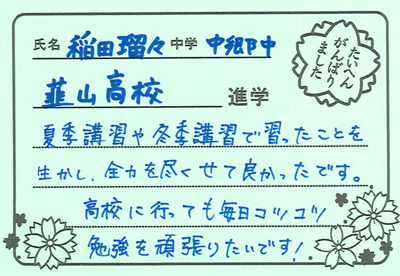 氏名 稲田瑠々 中学 中郷中
たいへん
がんばり
ました
韮山高校 進学
夏季講習や冬季講習で習ったことを
生かし、全力を尽くせて良かったです。
高校に行っても毎日コツコツ
勉強を頑張りたいです!